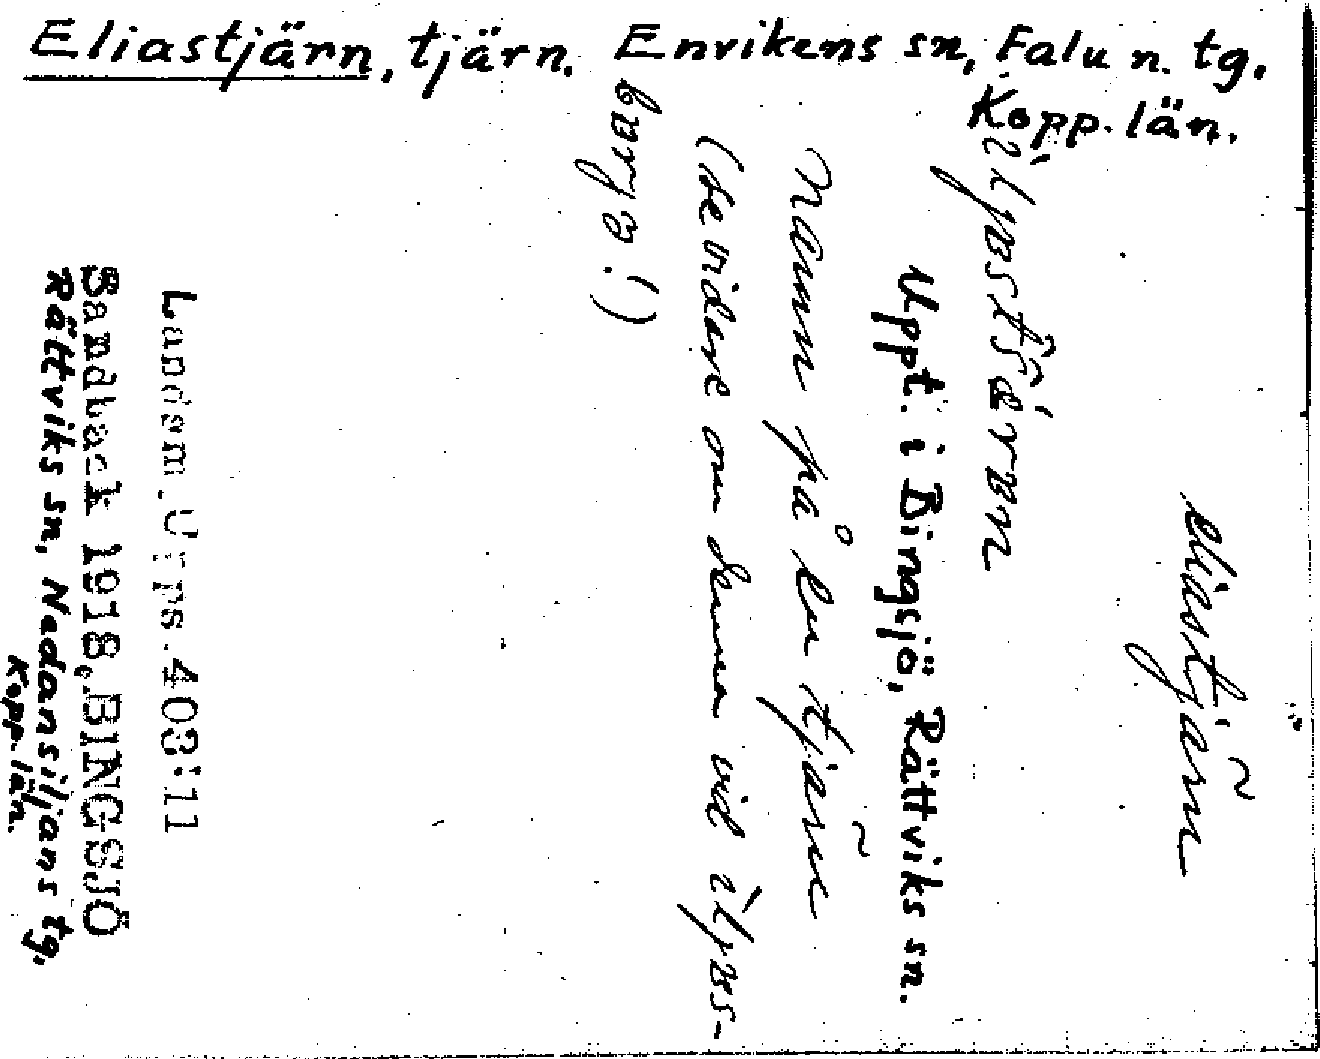 Eliastjärn, tjärn. Envikens sn, Falu n. tg.
Kopp. län.
Eliastjärn
Uppt. i Bingsjö, Rättviks sn.
Namn på en tjärn
(Se vidare om denna vid
Landsm. Upps. 403:11
Sandback 1918, BINGSJÖ
Rättviks sn, Nedansiljans tg,
Kopp. län.